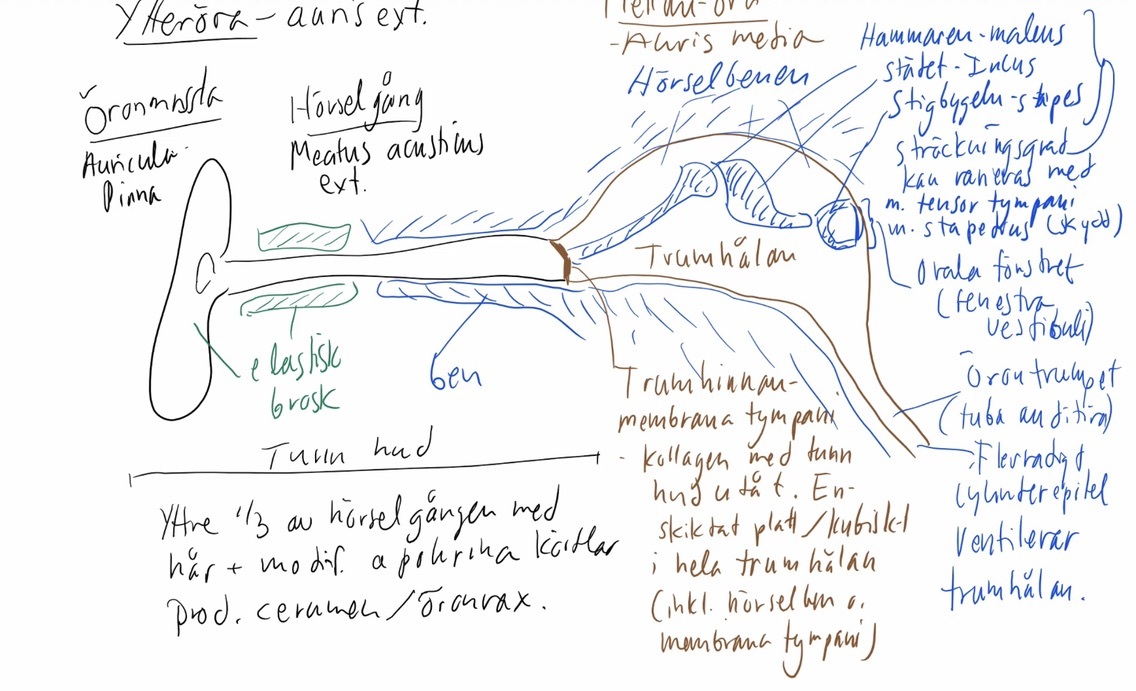 Ytteröra - auris ext.
Mellan-öra
- Auris media
Öronmussla
Auricula
Pinna
Hörselgång
Meatus acusticus
ext.
Hörselbenen
Hammaren - maleus
städet - Incus
Stigbygeln - stapes
sträckningsgrad
kan varieras med
m. tensor tympani
m. stapedius (skydd)
Ovala fönstret
(fenestra
vestibuli)
Trumhålan
elastisk
brosk
ben
Tunn hud
Yttre 1/3 av hörselgången med
hår + modif. apokrina körtlar
prod. cerumen/öronvax.
Trumhinnan -
membrana tympani
- kollagen med tunn
hud utåt. En-
skiktat platt/kubiskt
i hela trumhålan
(inkl. hörselben o.
membrana tympani)
Örontrumpet
(tuba auditiva)
Flerradigt
cylinderepitel
Ventilerar
trumhålan.